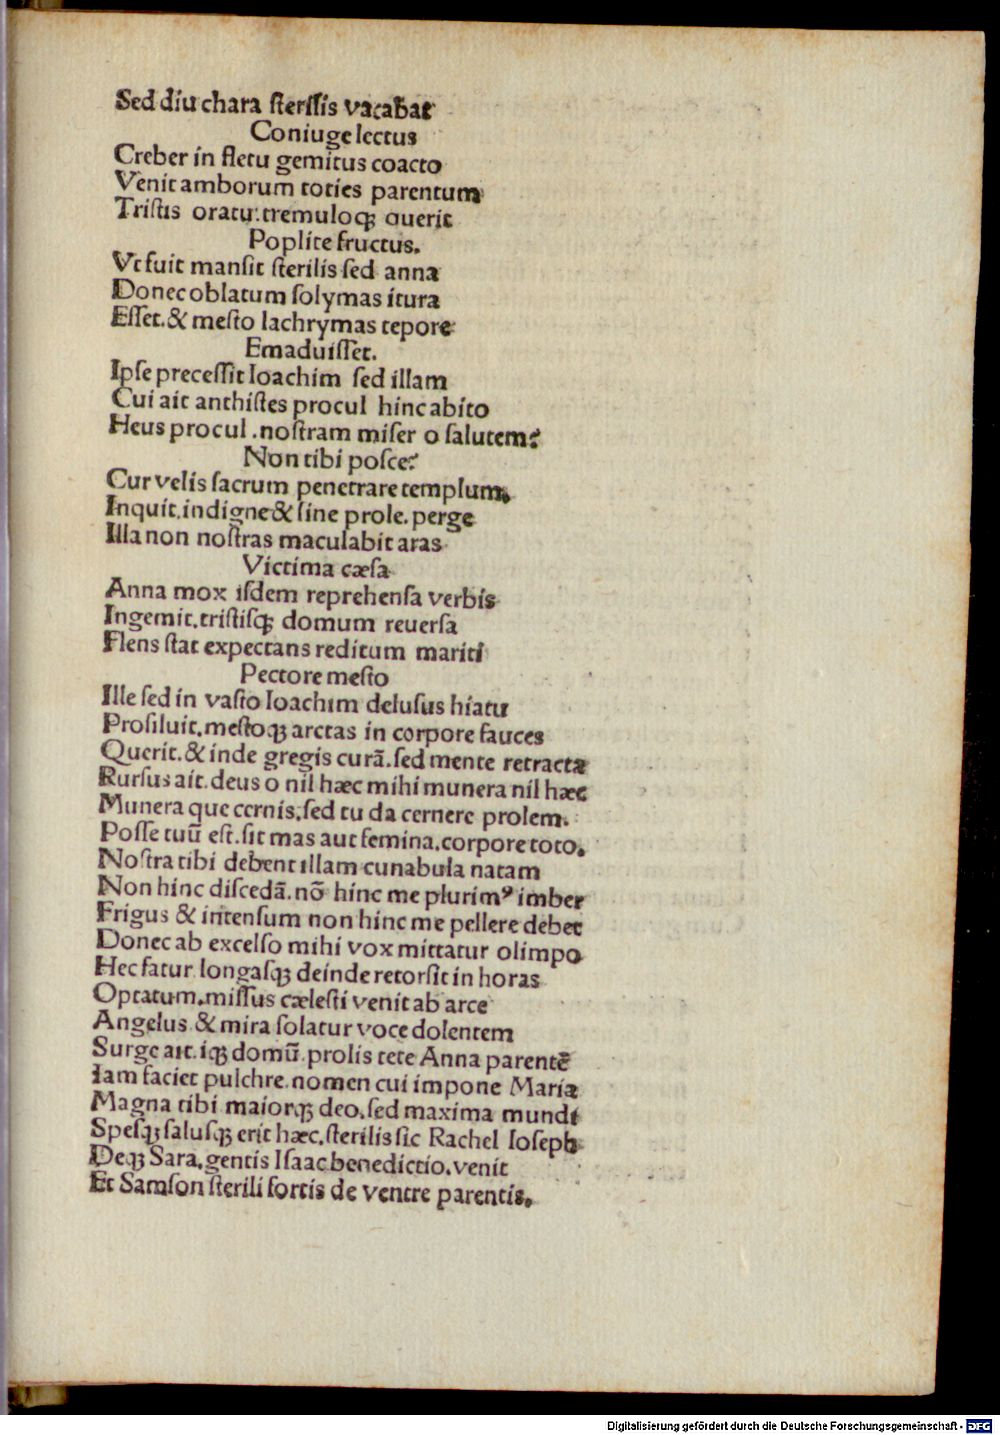 Sed diu chara sterilis vacabat
Coniuge lectus
Creber in fletu gemitus coacto
Venit amborum toties parentum
Tristis oratu: tremuloqꝫ querit
Poplite fructus.
Vt fuit mansit sterilis sed anna
Donec oblatum solymas itura
Esset. & mesto lachrymas tepore
Emaduisset.
Ipse precessit Ioachim sed illam
Cui ait anthistes procul hinc abito
Heus procul. nostram miser o salutem?
Non tibi posce?
Cur velis sacrum penetrare templum.
Inquit. indigne & sine prole. perge
Illa non nostras maculabit aras
Victima cæsa
Anna mox isdem reprehensa verbis
Ingemit. tristisqꝫ domum reuersa
Flens stat expectans reditum mariti
Pectore mesto
Ille sed in vasto Ioachim delusus hiatu
Prosiluit. mestoqꝫ arctas in corpore fauces
Querit. & inde gregis curā. sed mente retracta
Rursus ait. deus o nil hæc mihi munera nil hæc
Munera que cernis. sed tu da cernere prolem.
Posse tuū est. sit mas aut femina. corpore toto.
Nostra tibi debent illam cunabula natam
Non hinc discedā. nō hinc me plurimꝰ imber
Frigus & intensum non hinc me pellere debet
Donec ab excelso mihi vox mittatur olimpo
Hec fatur longasqꝫ deinde retorsit in horas
Optatum. missus cælesti venit ab arce
Angelus & mira solatur voce dolentem
Surge ait. iqꝫ domū. prolis tete Anna parentē
Iam faciet pulchre. nomen cui impone Maria
Magna tibi maiorqꝫ deo. sed maxima mundi
Spesqꝫ salusqꝫ erit hæc. sterilis sic Rachel Ioseph
Deqꝫ Sara. gentis Isaac benedictio. venit
Et Samson sterili fortis de ventre parentis.
Digitalisierung gefördert durch die Deutsche Forschungsgemeinschaft - DFG